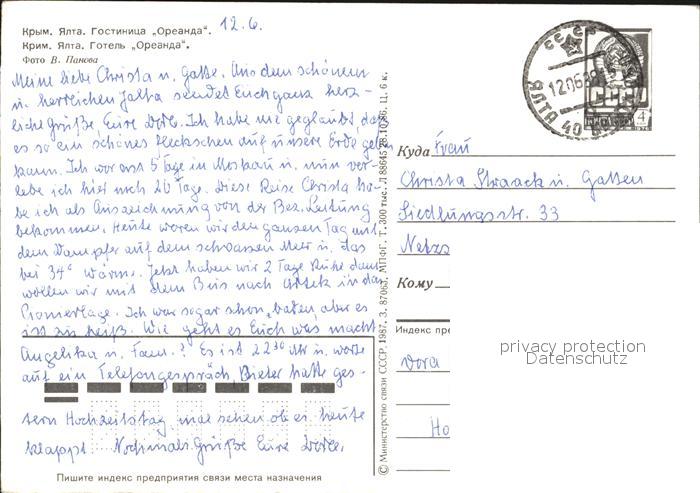 Крым. Ялта. Гостиница „Ореанда". 12.6.
Крим. Ялта. Готель „Ореанда".
Фото В. Панова
Meine liebe Christa u. Gatte. Aus dem schönen
u. herrlichen Jalta sendet Euch ganz herz-
liche Grüße, Eure Dorle. Ich habe nie geglaubt, daß
es so ein schönes Fleckchen auf unsere Erde geben
kann. Ich war erst 5 Tage in Moskau u. nun ver-
lebe ich hier noch 20 Tage. Diese Reise Christa ha-
be ich als Auszeichnung von der Bez. Leitung
bekommen. Heute waren wir den ganzen Tag mit
dem Dampfer auf dem schwarzen Meer u. das
bei 34° Wärme. Jetzt haben wir 2 Tage Ruhe dann
wollen wir mit dem Bus nach Artek in das
Pionierlager. Ich war sogar schon baden, aber es
ist zu heiß. Wie geht es Euch was macht
Angelika u. Fam.? Es ist 22³⁰ Uhr u. warte
auf ein Telefongespräch, Dieter hatte ges-
tern Hochzeitstag, mal sehen ob es heute
klappt. Nochmals Grüße Eure Dorle.
Пишите индекс предприятия связи места назначения
© Министерство связи СССР, 1987. З. 87063. МПФГ. Т. 300 тыс. Л 88645 28.10.86. Ц. 6 к.
СССР
ЯЛТА
120689
4
Куда Frau
Christa Straack u. Gatten
Siedlungsstr. 33
Netzs
Кому
Индекс пре
privacy protection
Datenschutz
Ho